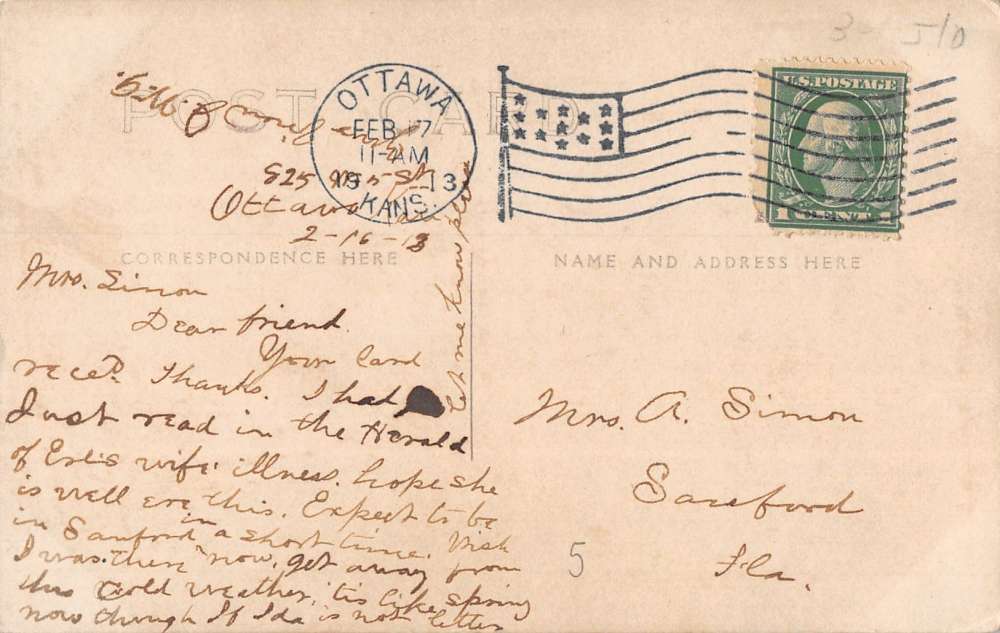 3- 510
POST CARD
OTTAWA
FEB 17
11-AM
19 13
KANS.
U.S. POSTAGE
1 CENT 1
825 St
Ottawa
2-16-13
CORRESPONDENCE HERE
NAME AND ADDRESS HERE
Mrs. Simon
Dear friend.
Your Card
reced. Thanks. I had
Just read in the Herald
of Erl's wife illness. hope she
is well ere this. Expect to be
in Sanford in a short time. Wish
I was there now, get away from
this cold weather, tis like spring
now though If Ida is not better
let me know
Mrs. A. Simon
Sanford
Fla.
5